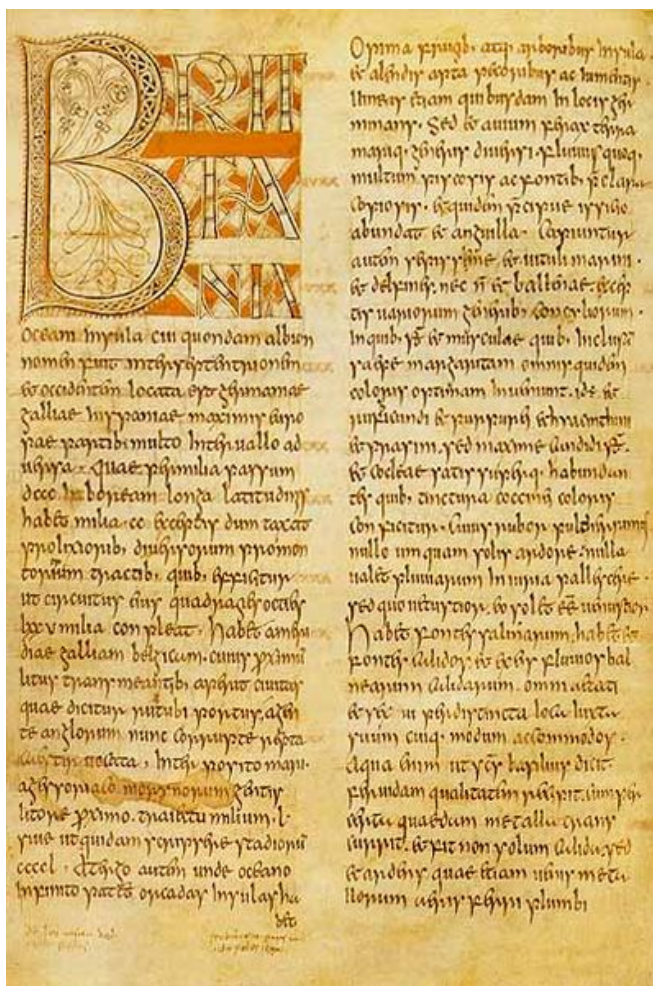 BRIT
TA
NIA
Oceani insula cui quondam albion
nomen fuit inter septentrionem
et occidentem locata est germaniae
galliae hispaniae maximis euro
pae partib; multo interuallo ad
uersa. Quae per milia passuum
dccc in boream longa latitudinis
habet milia .cc. exceptis dum taxat
prolixiorib; diuersorum promon
toriorum tractib; quib; efficitur
ut circuitus eius quadragies octies
lxxu milia conpleat. habet a meri
diae galliam belgicam. cuius proximum
litus transmeantib; aperit ciuitas
quae dicitur rutubi portus. a gen
te anglorum nunc corrupte repta
caestir uocata, interposito mari.
a gessoriaco morynorum gentis
litore proximo. traiectu milium .l.
siue ut quidam scripsere stadiorum
ccccl. A tergo autem unde oceano
infinito patet orcadas insulas ha
bet
Opima frugib; atq; arboribus insula.
et alendis apta pecoribus ac iumentis
uineas etiam quibusdam in locis ger
minans. Sed et auium ferax terra
mariq; generis diuersi. fluuiis quoq;
multum piscosis ac fontib; praeclara
copiosis. et quidem praecipue issicio
abundat et anguilla. Capiuntur
autem saepissime et uituli marini.
et delfines. nec non et ballenae. excep
tis uariorum generib; concyliorum.
in quib; sunt et musculae quib; inclusam
saepe margaritam omnis quidem
coloris optimam inueniunt. id est et
rubicundi et purpurei et hyacinthini
et prasini. sed maxime candidi. sunt
et cocleae satis superq; habundan
tes quib; tinctura coccinei coloris
conficitur. Cuius rubor pulcherrimus
nullo umquam solis ardore. nulla
ualet pluuiarum iniuria pallescere.
sed quo uetustior. eo solet esse uenustior.
habet fontes salinarum. habet et
fontes calidos. et ex eis fluuios bal
nearum calidarum. omni aetati
et sexui per distincta loca iuxta
suum cuiq; modum accommodos.
Aqua enim ut scs basilius dicit
feruidam qualitatem recipit. cum per
certa quaedam metalla trans
currit. et fit non solum calida. sed
et ardens. quae etiam uenis metal
lorum aeris ferri plumbi